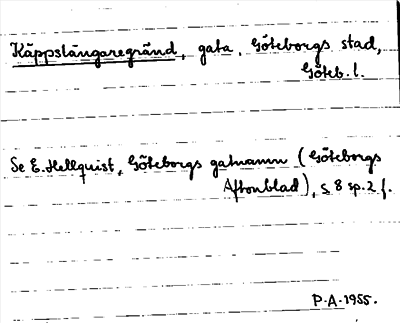 Käppslängaregränd, gata, Göteborgs stad,
Göteb. l.
Se E. Hellquist, Göteborgs gatnamn (Göteborgs
Aftonblad), s. 8 sp. 2 f.
P. A. 1955.